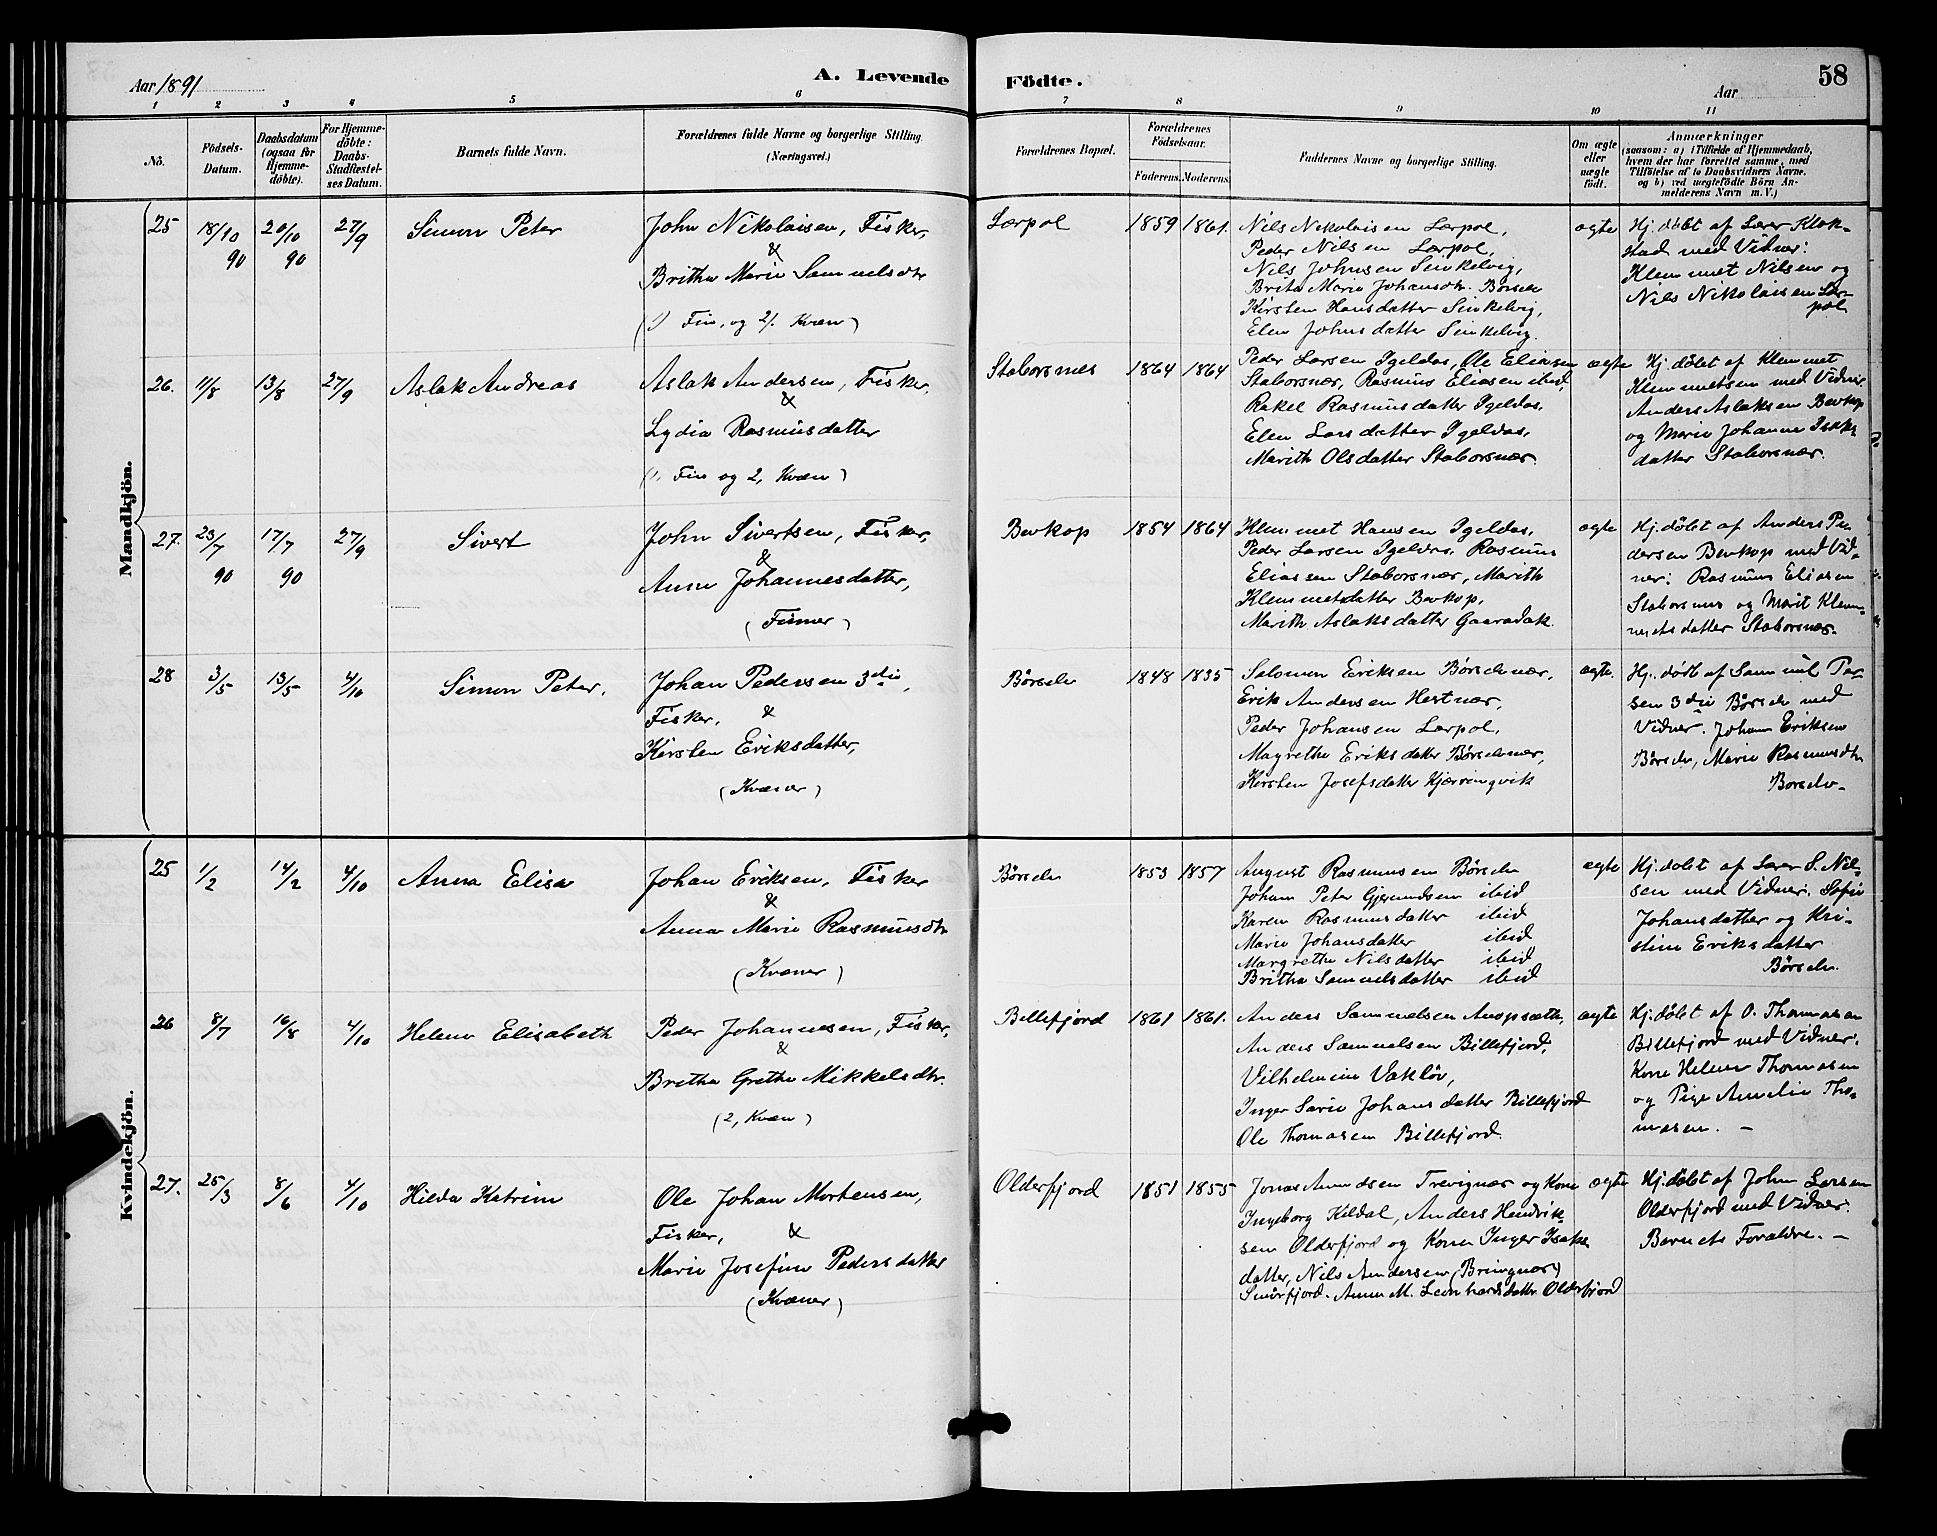 Aar 1891
A. Levende
Födte.
Aar
58
1 2 3 4 5 6 7 8 9 10 11
No.
Födsels-
Datum.
Daabsdatum
(ogsaa for
Hjemme-
döbte).
For Hjemme-
döbte:
Daabs-
Stadfestel-
ses Datum.
Barnets fulde Navn.
Forældrenes fulde Navne og borgerlige Stilling
(Næringsvei.)
Forældrenes Bopæl.
Forældrenes
Födselsaar.
Faderens.
Moderens.
Faddernes Navne og borgerlige Stilling.
Om ægte
eller
uægte
födt.
Anmærkninger
(saasom: a) i Tilfælde af Hjemmedaab,
hvem der har forrettet samme, med
Tilföielse af to Daabsvidners Navne,
og b) ved uægtefödte Börn An-
melderens Navn m. V.)
Mandkjön.
25
18/10
90
20/10
90
27/9
Simon Peter
John Nikolaisen, Fisker,
&
Britha Marie Samuelsdtr
(1) Fin, og 2/. Kvæn)
Lærpol
1859
1861.
Nils Nikolaisen Lærpol,
Peder Nilsen Lærpol,
Nils Johnsen Sinkelvig,
Brita Marie Johansdtr. Börselv
Kirsten Hansdatter Sinkelvig,
Elen Johnsdatter Sinkelvig.
ægte
Hj. döbt af Lærer Klok-
stad med Vidner:
Klemmet Nilsen og
Nils Nikolaisen Lær-
pol
26.
11/8
13/8
27/9
Aslak Andreas
Aslak Andersen, Fisker,
&
Lydia Rasmusdatter
(1, Fin og 2, Kvæn)
Staborsnes
1864
1864
Peder Larsen Igeldas, Ole Eliasen
Staborsnær, Rasmus Eliasen ibid,
Rakel Rasmusdatter Igeldas,
Elen Larsdatter Igeldas,
Marith Olsdatter Staborsnær.
ægte
Hj. döbt af Klemmet
Klemmetsen med Vidner
Anders Aslaksen Bevkop
og Marie Johanne Isaks
datter Staborsnær.
27.
23/7
90
17/7
90
27/9
Sivert
John Sivertsen, Fisker,
&
Anne Johannesdatter,
(Finner)
Bevkop
1854
1864
Klemmet Hansen Igeldas,
Peder Larsen Igeldas, Rasmus
Eliassen Staborsnær, Marith
Klemmetsdatter Bevkop,
Marith Aslaksdatter Gaaradak.
ægte
Hj. döbt af Anders Pe-
dersen Bevkop med Vid-
ner: Rasmus Eliasen
Staborsnes og Marit Klem-
metsdatter Staborsnær.
28
3/5
13/5
4/10
Simon Peter.
Johan Pedersen 3die,
Fisker, &
Kirsten Eriksdatter,
(Kvæner)
Börselv
1848
1835
Salomon Eriksen Börselvnær,
Erik Andersen Hestnær,
Peder Johansen Lærpol,
Magrethe Eriksdatter Börselvnær,
Kirsten Josefsdatter Kjærringvik
ægte.
Hj. döbt af Sammul Per-
sen 3die Börselv med
Vidner: Johan Eriksen
Börselv, Marie Rasmusdtr
Börselv.
Kvindekjön.
25
1/2
14/2
4/10
Anna Elisa
Johan Eriksen, Fisker
&
Anna Marie Rasmusdtr
(Kvæner)
Börselv
1853
1857
August Rasmussen Börselv
Johan Peter Gjermundsen ibid
Karen Rasmusdatter ibid
Marie Johansdatter ibid
Margrethe Nilsdatter ibid
Britha Samuelsdatter ibid
ægte
Hj. döbt af Lærer S. Nil-
sen med Vidner: Sofie
Johansdatter og Kri-
stine Eriksdatter
Börselv.
26
8/7
16/8
4/10
Helene Elisabeth
Peder Johannesen, Fisker,
&
Britha Grethe Mikkelsdtr.
(2, Kvæn)
Billefjord
1861
1861.
Anders Samuelsen Anopsætte,
Anders Samuelsen Billefjord,
Vilhelmine Vaklöv,
Inger Sarie Johansdatter Billefjord
Ole Thomasen Billefjord.
ægte
Hj. döbt af O. Thomasen
Billefjord med Vidner:
Kone Helene Thomasen
og Pige Amelie Tho-
masen. -
27.
25/3
8/6
4/10
Hilda Katrine
Ole Johan Mortensen,
Fisker, &
Marie Josefine Pedersdatter
(Kvæner)
Olderfjord
1851
1855
Jonas Amundsen Trevignær og Kone
Ingeborg Kildal, Anders Hendrik-
sen Olderfjord og Kone Inger Isaks
datter, Nils Andersen (Bringnær)
Smörfjord. Anne M. Leonhardsdatter Olderfjord
ægte
Hj. döbt af John Larsen
Olderfjord med Vidner:
Barnets Forældre. -